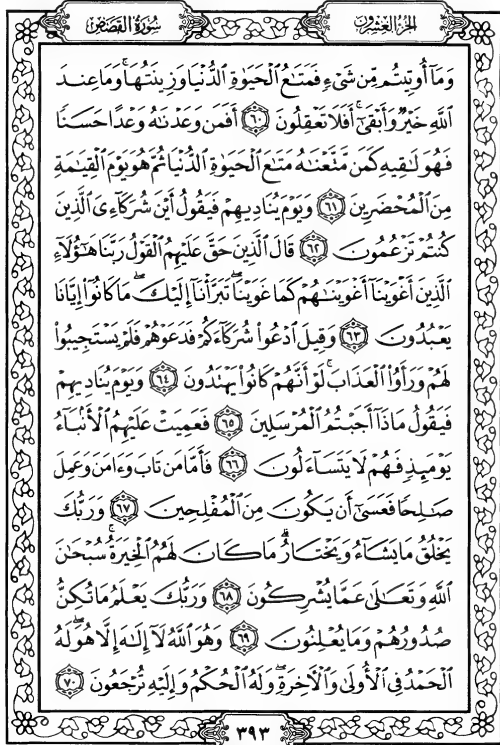 سُورَةُ القَصَصِ
الجُزْءُ العِشْرُونَ
وَمَآ أُوتِيتُم مِّن شَىْءٍ فَمَتَٰعُ ٱلْحَيَوٰةِ ٱلدُّنْيَا وَزِينَتُهَا ۚ وَمَا عِندَ
ٱللَّهِ خَيْرٌ وَأَبْقَىٰٓ ۚ أَفَلَا تَعْقِلُونَ ٦٠ أَفَمَن وَعَدْنَٰهُ وَعْدًا حَسَنًا
فَهُوَ لَٰقِيهِ كَمَن مَّتَّعْنَٰهُ مَتَٰعَ ٱلْحَيَوٰةِ ٱلدُّنْيَا ثُمَّ هُوَ يَوْمَ ٱلْقِيَٰمَةِ
مِنَ ٱلْمُحْضَرِينَ ٦١ وَيَوْمَ يُنَادِيهِمْ فَيَقُولُ أَيْنَ شُرَكَآءِىَ ٱلَّذِينَ
كُنتُمْ تَزْعُمُونَ ٦٢ قَالَ ٱلَّذِينَ حَقَّ عَلَيْهِمُ ٱلْقَوْلُ رَبَّنَا هَٰٓؤُلَآءِ
ٱلَّذِينَ أَغْوَيْنَآ أَغْوَيْنَٰهُمْ كَمَا غَوَيْنَا ۖ تَبَرَّأْنَآ إِلَيْكَ ۖ مَا كَانُوٓا۟ إِيَّانَا
يَعْبُدُونَ ٦٣ وَقِيلَ ٱدْعُوا۟ شُرَكَآءَكُمْ فَدَعَوْهُمْ فَلَمْ يَسْتَجِيبُوا۟
لَهُمْ وَرَأَوُا۟ ٱلْعَذَابَ ۚ لَوْ أَنَّهُمْ كَانُوا۟ يَهْتَدُونَ ٦٤ وَيَوْمَ يُنَادِيهِمْ
فَيَقُولُ مَاذَآ أَجَبْتُمُ ٱلْمُرْسَلِينَ ٦٥ فَعَمِيَتْ عَلَيْهِمُ ٱلْأَنۢبَآءُ
يَوْمَئِذٍ فَهُمْ لَا يَتَسَآءَلُونَ ٦٦ فَأَمَّا مَن تَابَ وَءَامَنَ وَعَمِلَ
صَٰلِحًا فَعَسَىٰٓ أَن يَكُونَ مِنَ ٱلْمُفْلِحِينَ ٦٧ وَرَبُّكَ
يَخْلُقُ مَا يَشَآءُ وَيَخْتَارُ ۗ مَا كَانَ لَهُمُ ٱلْخِيَرَةُ ۚ سُبْحَٰنَ
ٱللَّهِ وَتَعَٰلَىٰ عَمَّا يُشْرِكُونَ ٦٨ وَرَبُّكَ يَعْلَمُ مَا تُكِنُّ
صُدُورُهُمْ وَمَا يُعْلِنُونَ ٦٩ وَهُوَ ٱللَّهُ لَآ إِلَٰهَ إِلَّا هُوَ ۖ لَهُ
ٱلْحَمْدُ فِى ٱلْأُولَىٰ وَٱلْءَاخِرَةِ ۖ وَلَهُ ٱلْحُكْمُ وَإِلَيْهِ تُرْجَعُونَ ٧٠
٣٩٣